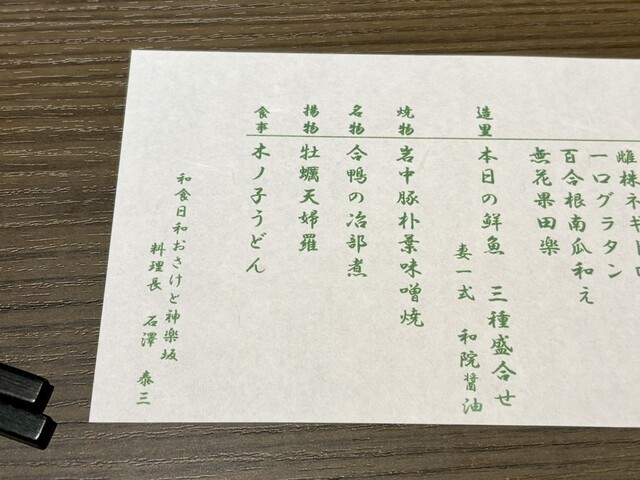 雌株ネギトロ
一口グラタン
百合根南瓜和え
無花果田楽
造里 本日の鮮魚 三種盛合せ
妻一式 和院醤油
焼物 岩中豚朴葉味噌焼
名物 合鴨の冶部煮
揚物 牡蠣天婦羅
食事 木ノ子うどん
和食日和おさけと神楽坂
料理長 石澤 泰三